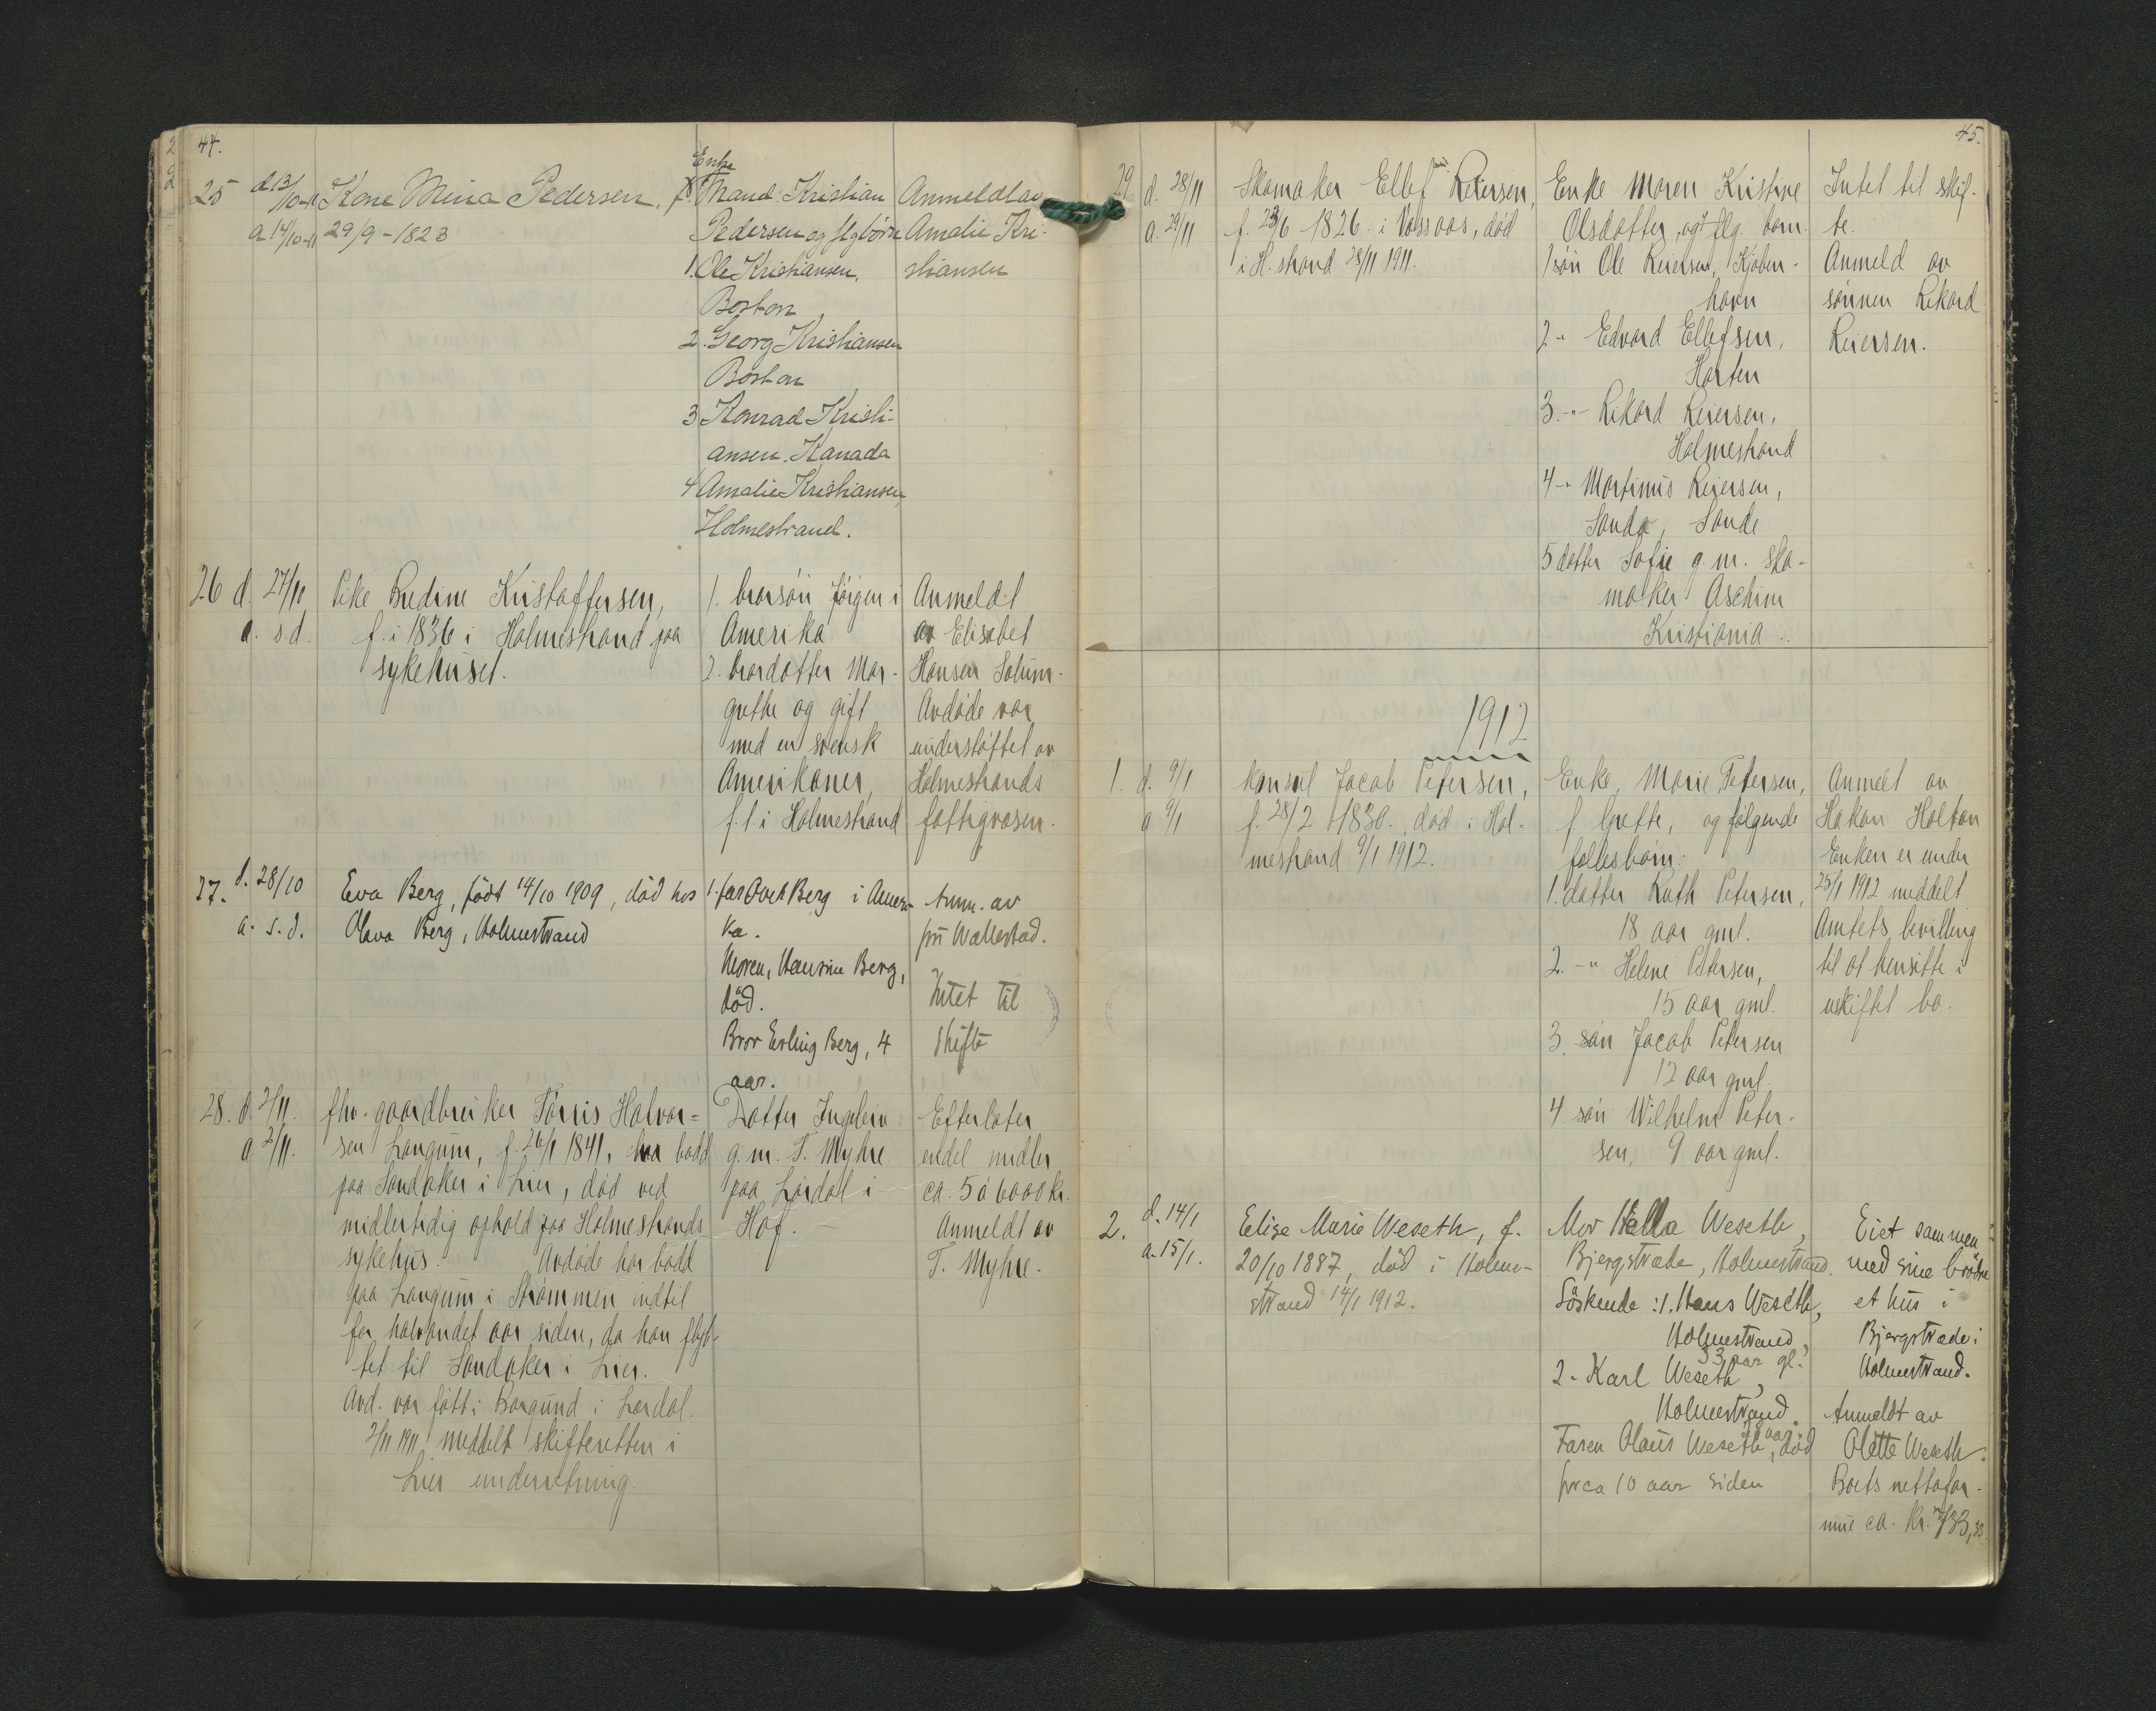 44.
25 d.13/10-11 Kone Mina Pedersen, f.
a.14/10-11 29/9-1823
Enke
Mand: Kristian
Pedersen og flg børn
1. Ole Kristiansen,
Boston
2. Georg Kristiansen
Boston
3 Konrad Kristi-
ansen. Kanada
4 Amalie Kristiansen,
Holmestrand.
Anmeldt av
Amalie Kri-
stiansen
26 d. 27/10 Pike Kristoffersen,
a. s.d. f. i 1836 i Holmestrand paa
sykehuset.
1. brorsön Jörgen i
Amerika
2. brordatter Mar-
grethe og gift
med en svensk
Amerikaner,
f.t. i Holmestrand
Anmeldt
av Elisabet
Hansen Solum.
Avdöde var
understöttet av
Holmestrands
fattigvæsen.
27. d. 28/10 Eva Berg, född 14/10 1909, död hos
a. s.d. Olava Berg, Holmestrand
1. far Berg i Ameri-
ka.
Moren, Hansine Berg,
död.
Bror Erling Berg, 4
aar.
Anm. av
frü Wallestad.
Intet til
skifte
28. d. 2/11. fhv. gaardbruker Törris Halvor=
a. 2/11. sen Langum, f. 26/1 1841, har bodd
paa Sandaker i Lier, död ved
midlertidig ophold paa Holmestrands
sykehus. Avdöde har bodd
paa Langum i Strömmen indtil
for halvandet aar siden, da han flyt-
tet til Sandaker i Lier.
Avd. var fött i Borgund i Lærdal.
2/11 1911 meddelt skifteretten i
Lier underretning.
Datter Ingeleiv
g.m. T. Myhre
paa Lördal i
Hof.
Efterlater
endel midler
ca. 5 à 6000 kr.
Anmeldt av
T. Myhre.
45.
29. d. 28/11 Skomaker Ellef Reiersen,
a. 29/11 f. 23/6 1826 i Vassaas, död
i H.strand 28/11 1911.
Enke Maren Kristine
Olsdatter, og flg. barn.
1 sön Ole Reiersen, Kjöben-
havn
2 -"- Edvard Ellefsen,
Horten
3. -"- Rikard Reiersen,
Holmestrand
4 -"- Martinius Reiersen,
Sanda, Sande
5 datter Sofie g.m. sko-
maker Aschim
Kristiania.
Intet til skif-
te.
Anmeld av
sönnen Rikard
Reiersen.
1912
1. d. 9/1 Konsul Jacob Petersen,
a 9/1 f. 28/2 1836., död i Hol-
mestrand 9/1 1912.
Enke, Marie Petersen,
f Grette, og fölgende
fellesbörn:
1. datter Ruth Petersen,
18 aar gml.
2. -"- Helene Petersen,
15 aar gml.
3. sön Jacob Petersen
12 aar gml.
4 sön Wilhelm Peter-
sen, 9 aar gml.
Anmelt av
Hakon Holtan
Enken er under
25/1 1912 meddelt
Amtets bevilling
til at hensitte i
uskiftet bo.
2. d. 14/1 Elise Marie Weseth, f.
a. 15/1. 20/10 1887, död i Holme-
strand 14/1 1912.
Mor Hella Weseth,
Bjergstræde, Holmestrand.
Söskende: 1. Hans Weseth,
Holmestrand,
33 aar gl.
2. Karl Weseth,
Holmestrand.
Faren Olaus Weseth, död
for ca 10 aar siden
Eiet sammen
med sine brödre
et hus i
Bjergstræde i
Holmestrand.
Anmeldt av
Olette Weseth.
Boets nettofor-
mue ca. kr.